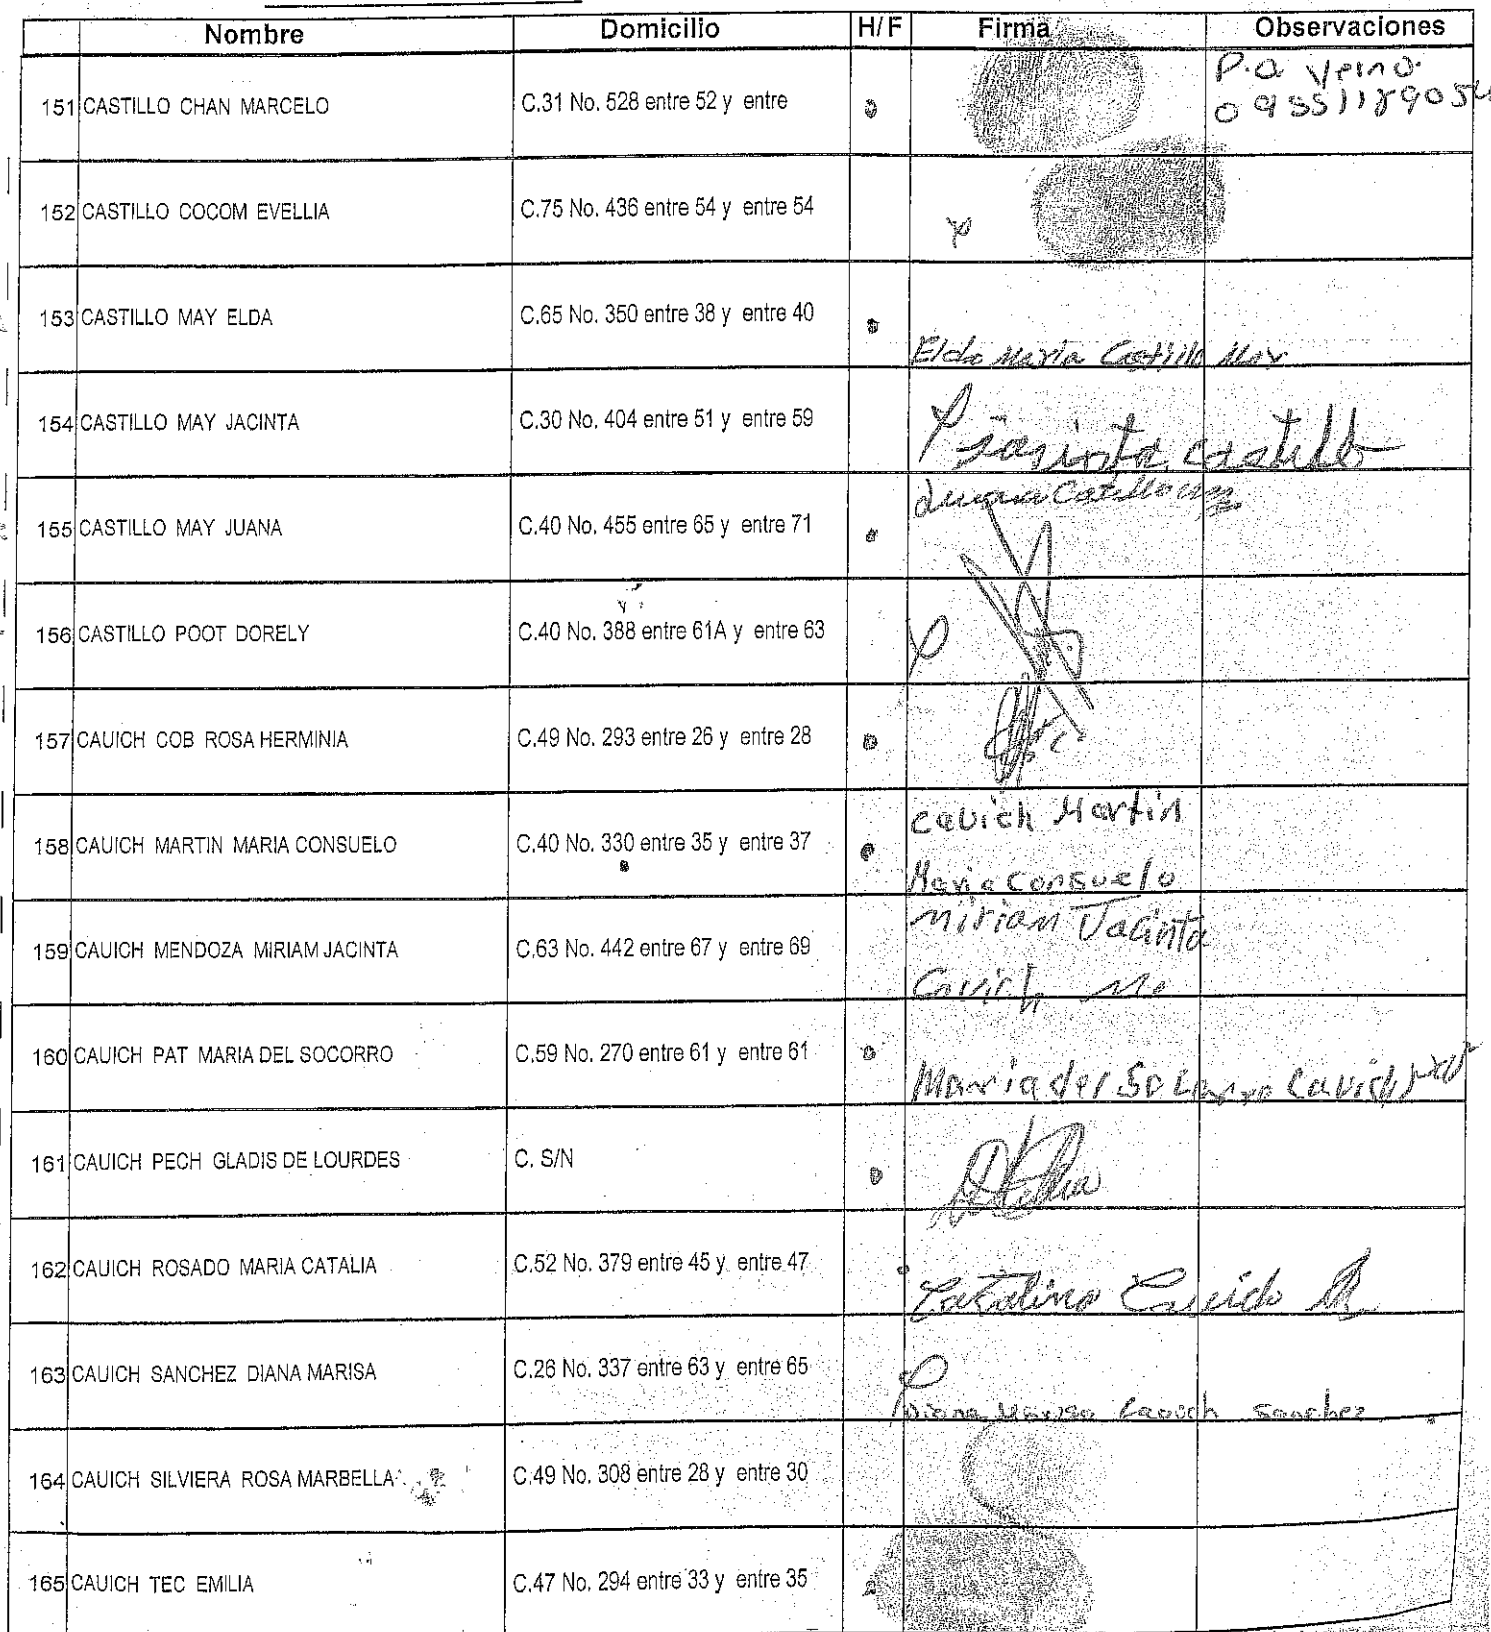 Nombre Domicilio H/F Firma Observaciones
P.a Yerno.
151 CASTILLO CHAN MARCELO C.31 No. 528 entre 52 y entre 09551189054
152 CASTILLO COCOM EVELLIA C.75 No. 436 entre 54 y entre 54
153 CASTILLO MAY ELDA C.65 No. 350 entre 38 y entre 40
Elda Maria Castillo May
154 CASTILLO MAY JACINTA C.30 No. 404 entre 51 y entre 59
Jasinta Castillo
155 CASTILLO MAY JUANA C.40 No. 455 entre 65 y entre 71
156 CASTILLO POOT DORELY C.40 No. 388 entre 61A y entre 63
157 CAUICH COB ROSA HERMINIA C.49 No. 293 entre 26 y entre 28
cauich Martin
158 CAUICH MARTIN MARIA CONSUELO C.40 No. 330 entre 35 y entre 37
Maria Consuelo
miriam Jacinta
159 CAUICH MENDOZA MIRIAM JACINTA C.63 No. 442 entre 67 y entre 69
Cauich Me
160 CAUICH PAT MARIA DEL SOCORRO C.59 No. 270 entre 61 y entre 61
Maria del Socorro Cauich
161 CAUICH PECH GLADIS DE LOURDES C. S/N
162 CAUICH ROSADO MARIA CATALIA C.52 No. 379 entre 45 y entre 47
Catalina
163 CAUICH SANCHEZ DIANA MARISA C.26 No. 337 entre 63 y entre 65
Diana Marisa Cauich Sanchez
164 CAUICH SILVIERA ROSA MARBELLA C.49 No. 308 entre 28 y entre 30
165 CAUICH TEC EMILIA C.47 No. 294 entre 33 y entre 35